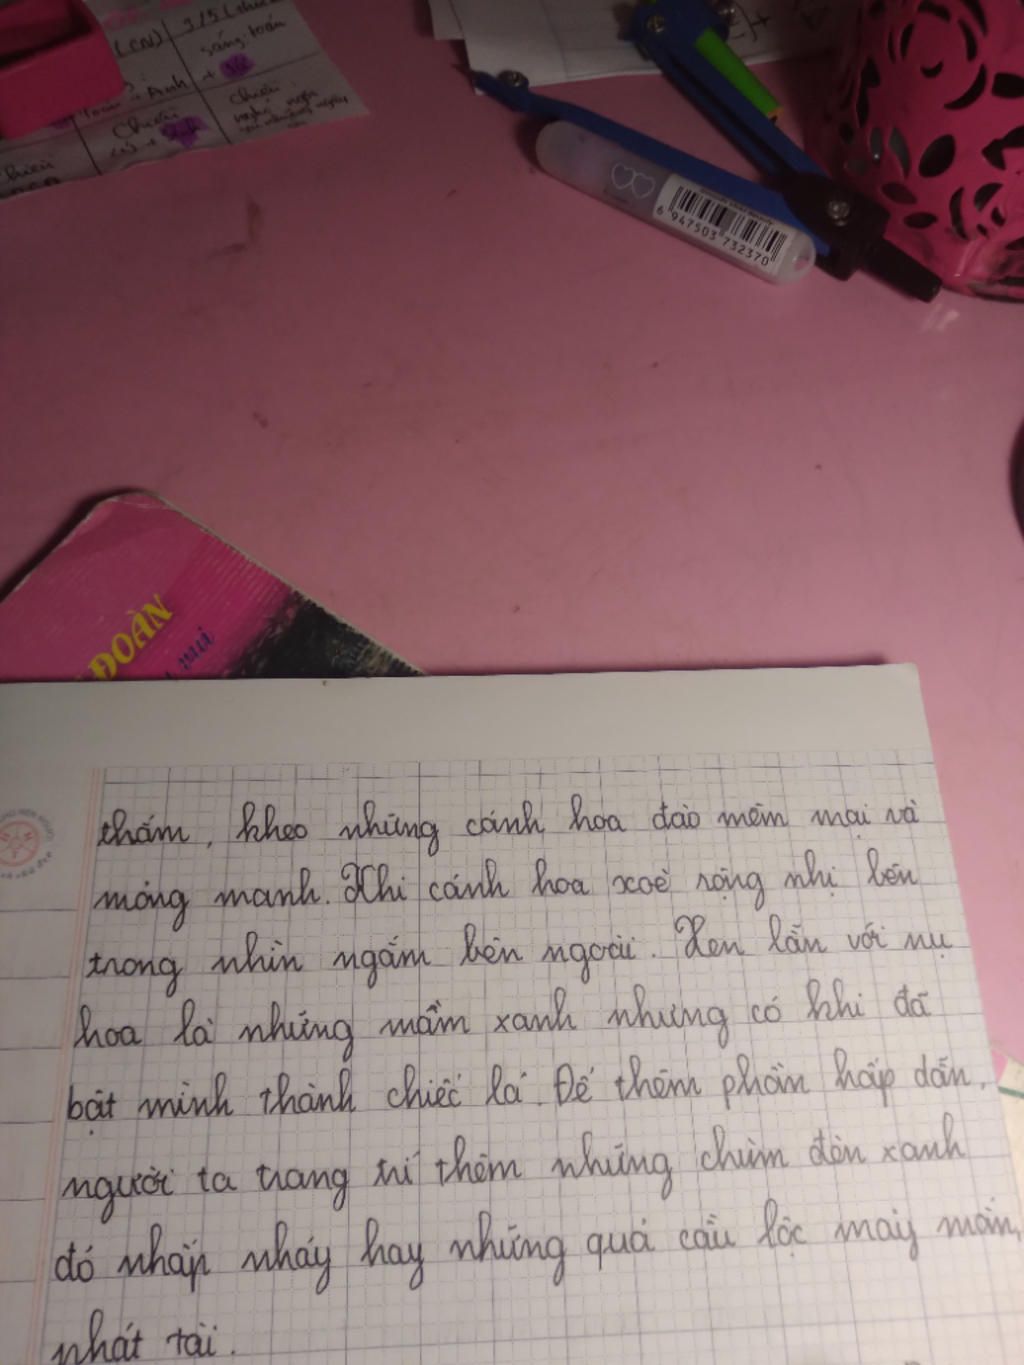 (CN)
3/5 (
sáng: toán
+ Anh
+
Chiều
Chiều
nghỉ
Chiều
6 947503 732370
ĐOÀN
vui
thắm, kheo những cánh hoa đào mềm mại và
mỏng manh. Khi cánh hoa xoè rộng nhị bên
trong nhìn ngắm bên ngoài. Xen lẫn với nụ
hoa là những mầm xanh nhưng có khi đã
bật mình thành chiếc lá. Để thêm phần hấp dẫn,
người ta trang trí thêm những chùm đèn xanh
đỏ nhấp nháy hay những quả cầu lộc may mắn,
phát tài.